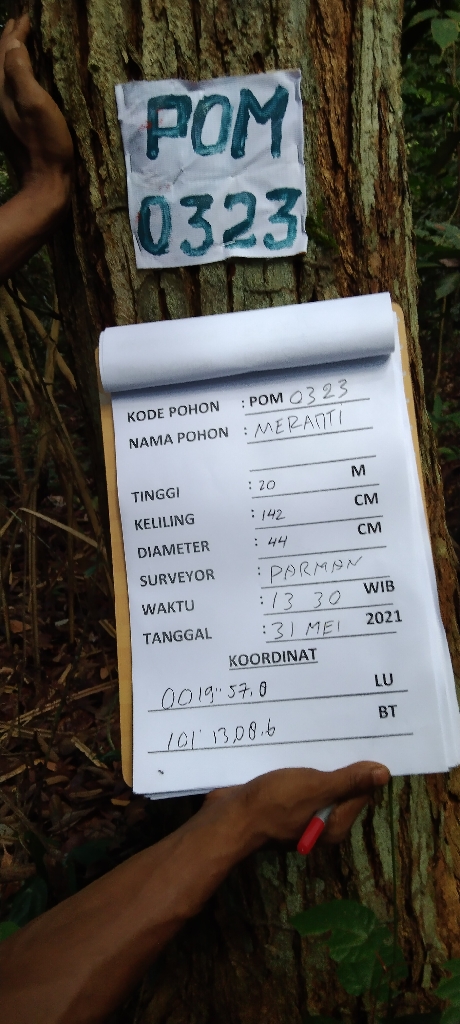 POM
0323
KODE POHON : POM 0323
NAMA POHON : MERANTI
TINGGI : 20 M
KELILING : 142 CM
DIAMETER : 44 CM
SURVEYOR : PARMAN
WAKTU : 13 30 WIB
TANGGAL : 31 MEI 2021
KOORDINAT
0019'' 57.0 LU
101' 13.08.6 BT